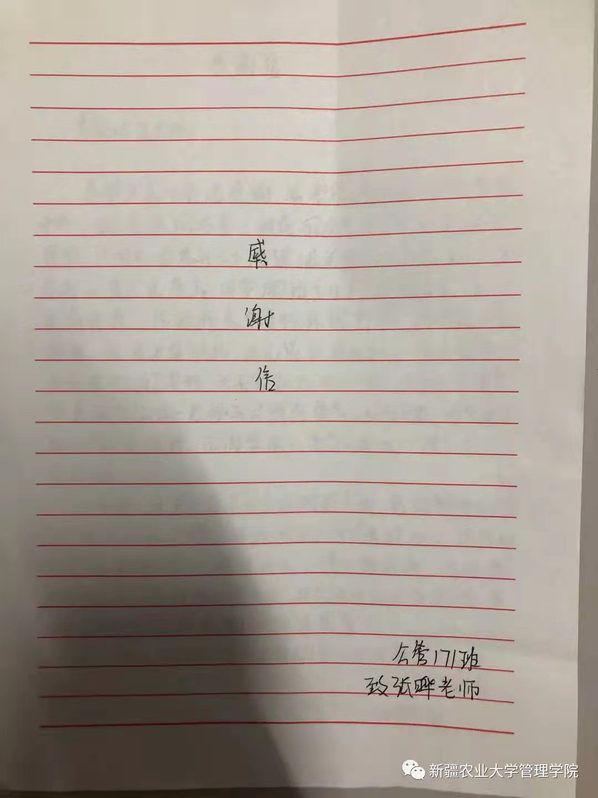 感
谢
信
公管171班
致张晔老师
新疆农业大学管理学院